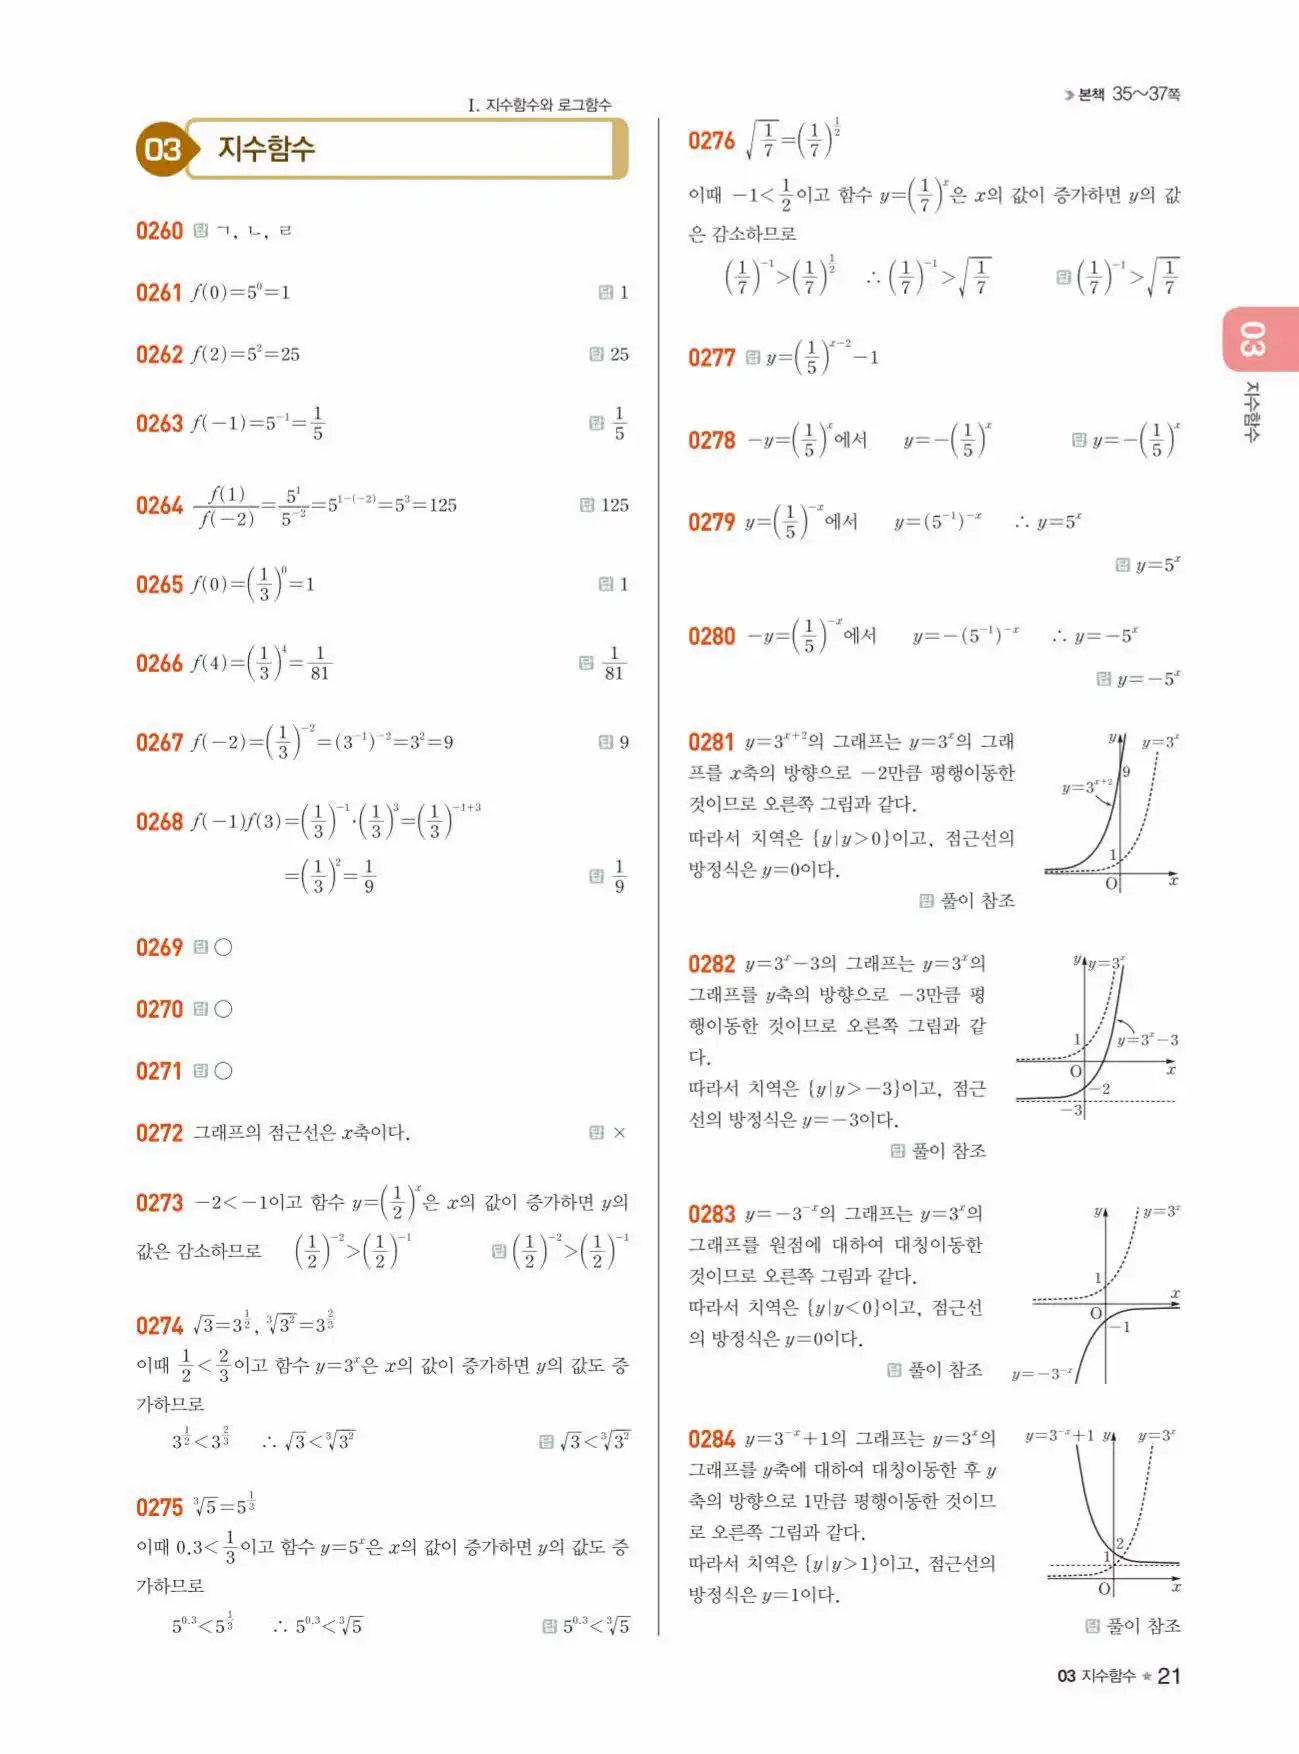 I. 지수함수와 로그함수
03 지수함수
0260 답 ㄱ, ㄴ, ㄹ
0261 f(0)=5^0=1 답 1
0262 f(2)=5^2=25 답 25
0263 f(-1)=5^{-1}=1/5 답 1/5
0264 f(1)/f(-2)=5^1/5^{-2}=5^{1-(-2)}=5^3=125 답 125
0265 f(0)=(1/3)^0=1 답 1
0266 f(4)=(1/3)^4=1/81 답 1/81
0267 f(-2)=(1/3)^{-2}=(3^{-1})^{-2}=3^2=9 답 9
0268 f(-1)f(3)=(1/3)^{-1}·(1/3)^3=(1/3)^{-1+3}
=(1/3)^2=1/9 답 1/9
0269 답 ○
0270 답 ○
0271 답 ○
0272 그래프의 점근선은 x축이다. 답 ×
0273 -2<-1이고 함수 y=(1/2)^x은 x의 값이 증가하면 y의
값은 감소하므로 (1/2)^{-2}>(1/2)^{-1} 답 (1/2)^{-2}>(1/2)^{-1}
0274 √3=3^{1/2}, ∛3^2=3^{2/3}
이때 1/2<2/3이고 함수 y=3^x은 x의 값이 증가하면 y의 값도 증
가하므로
3^{1/2}<3^{2/3} ∴ √3<∛3^2 답 √3<∛3^2
0275 ∛5=5^{1/3}
이때 0.3<1/3이고 함수 y=5^x은 x의 값이 증가하면 y의 값도 증
가하므로
5^{0.3}<5^{1/3} ∴ 5^{0.3}<∛5 답 5^{0.3}<∛5
본책 35~37쪽
0276 √(1/7)=(1/7)^{1/2}
이때 -1<1/2이고 함수 y=(1/7)^x은 x의 값이 증가하면 y의 값
은 감소하므로
(1/7)^{-1}>(1/7)^{1/2} ∴ (1/7)^{-1}>√(1/7) 답 (1/7)^{-1}>√(1/7)
0277 답 y=(1/5)^{x-2}-1
0278 -y=(1/5)^x에서 y=-(1/5)^x 답 y=-(1/5)^x
0279 y=(1/5)^{-x}에서 y=(5^{-1})^{-x} ∴ y=5^x
답 y=5^x
0280 -y=(1/5)^{-x}에서 y=-(5^{-1})^{-x} ∴ y=-5^x
답 y=-5^x
0281 y=3^{x+2}의 그래프는 y=3^x의 그래
프를 x축의 방향으로 -2만큼 평행이동한
것이므로 오른쪽 그림과 같다.
따라서 치역은 {y|y>0}이고, 점근선의
방정식은 y=0이다.
답 풀이 참조
y y=3^x
9
y=3^{x+2}
1
O x
0282 y=3^x-3의 그래프는 y=3^x의
그래프를 y축의 방향으로 -3만큼 평
행이동한 것이므로 오른쪽 그림과 같
다.
따라서 치역은 {y|y>-3}이고, 점근
선의 방정식은 y=-3이다.
답 풀이 참조
y y=3^x
1 y=3^x-3
O x
-2
-3
0283 y=-3^{-x}의 그래프는 y=3^x의
그래프를 원점에 대하여 대칭이동한
것이므로 오른쪽 그림과 같다.
따라서 치역은 {y|y<0}이고, 점근선
의 방정식은 y=0이다.
답 풀이 참조
y y=3^x
1
x
O
-1
y=-3^{-x}
0284 y=3^{-x}+1의 그래프는 y=3^x의
그래프를 y축에 대하여 대칭이동한 후 y
축의 방향으로 1만큼 평행이동한 것이므
로 오른쪽 그림과 같다.
따라서 치역은 {y|y>1}이고, 점근선의
방정식은 y=1이다.
답 풀이 참조
y=3^{-x}+1 y y=3^x
2
1
O x
03
지수함수
03 지수함수 ★ 21